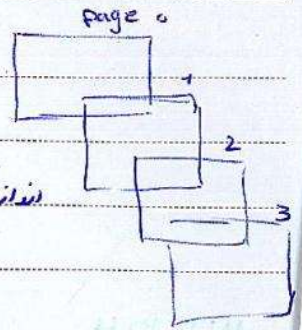 page 0
1
2
3